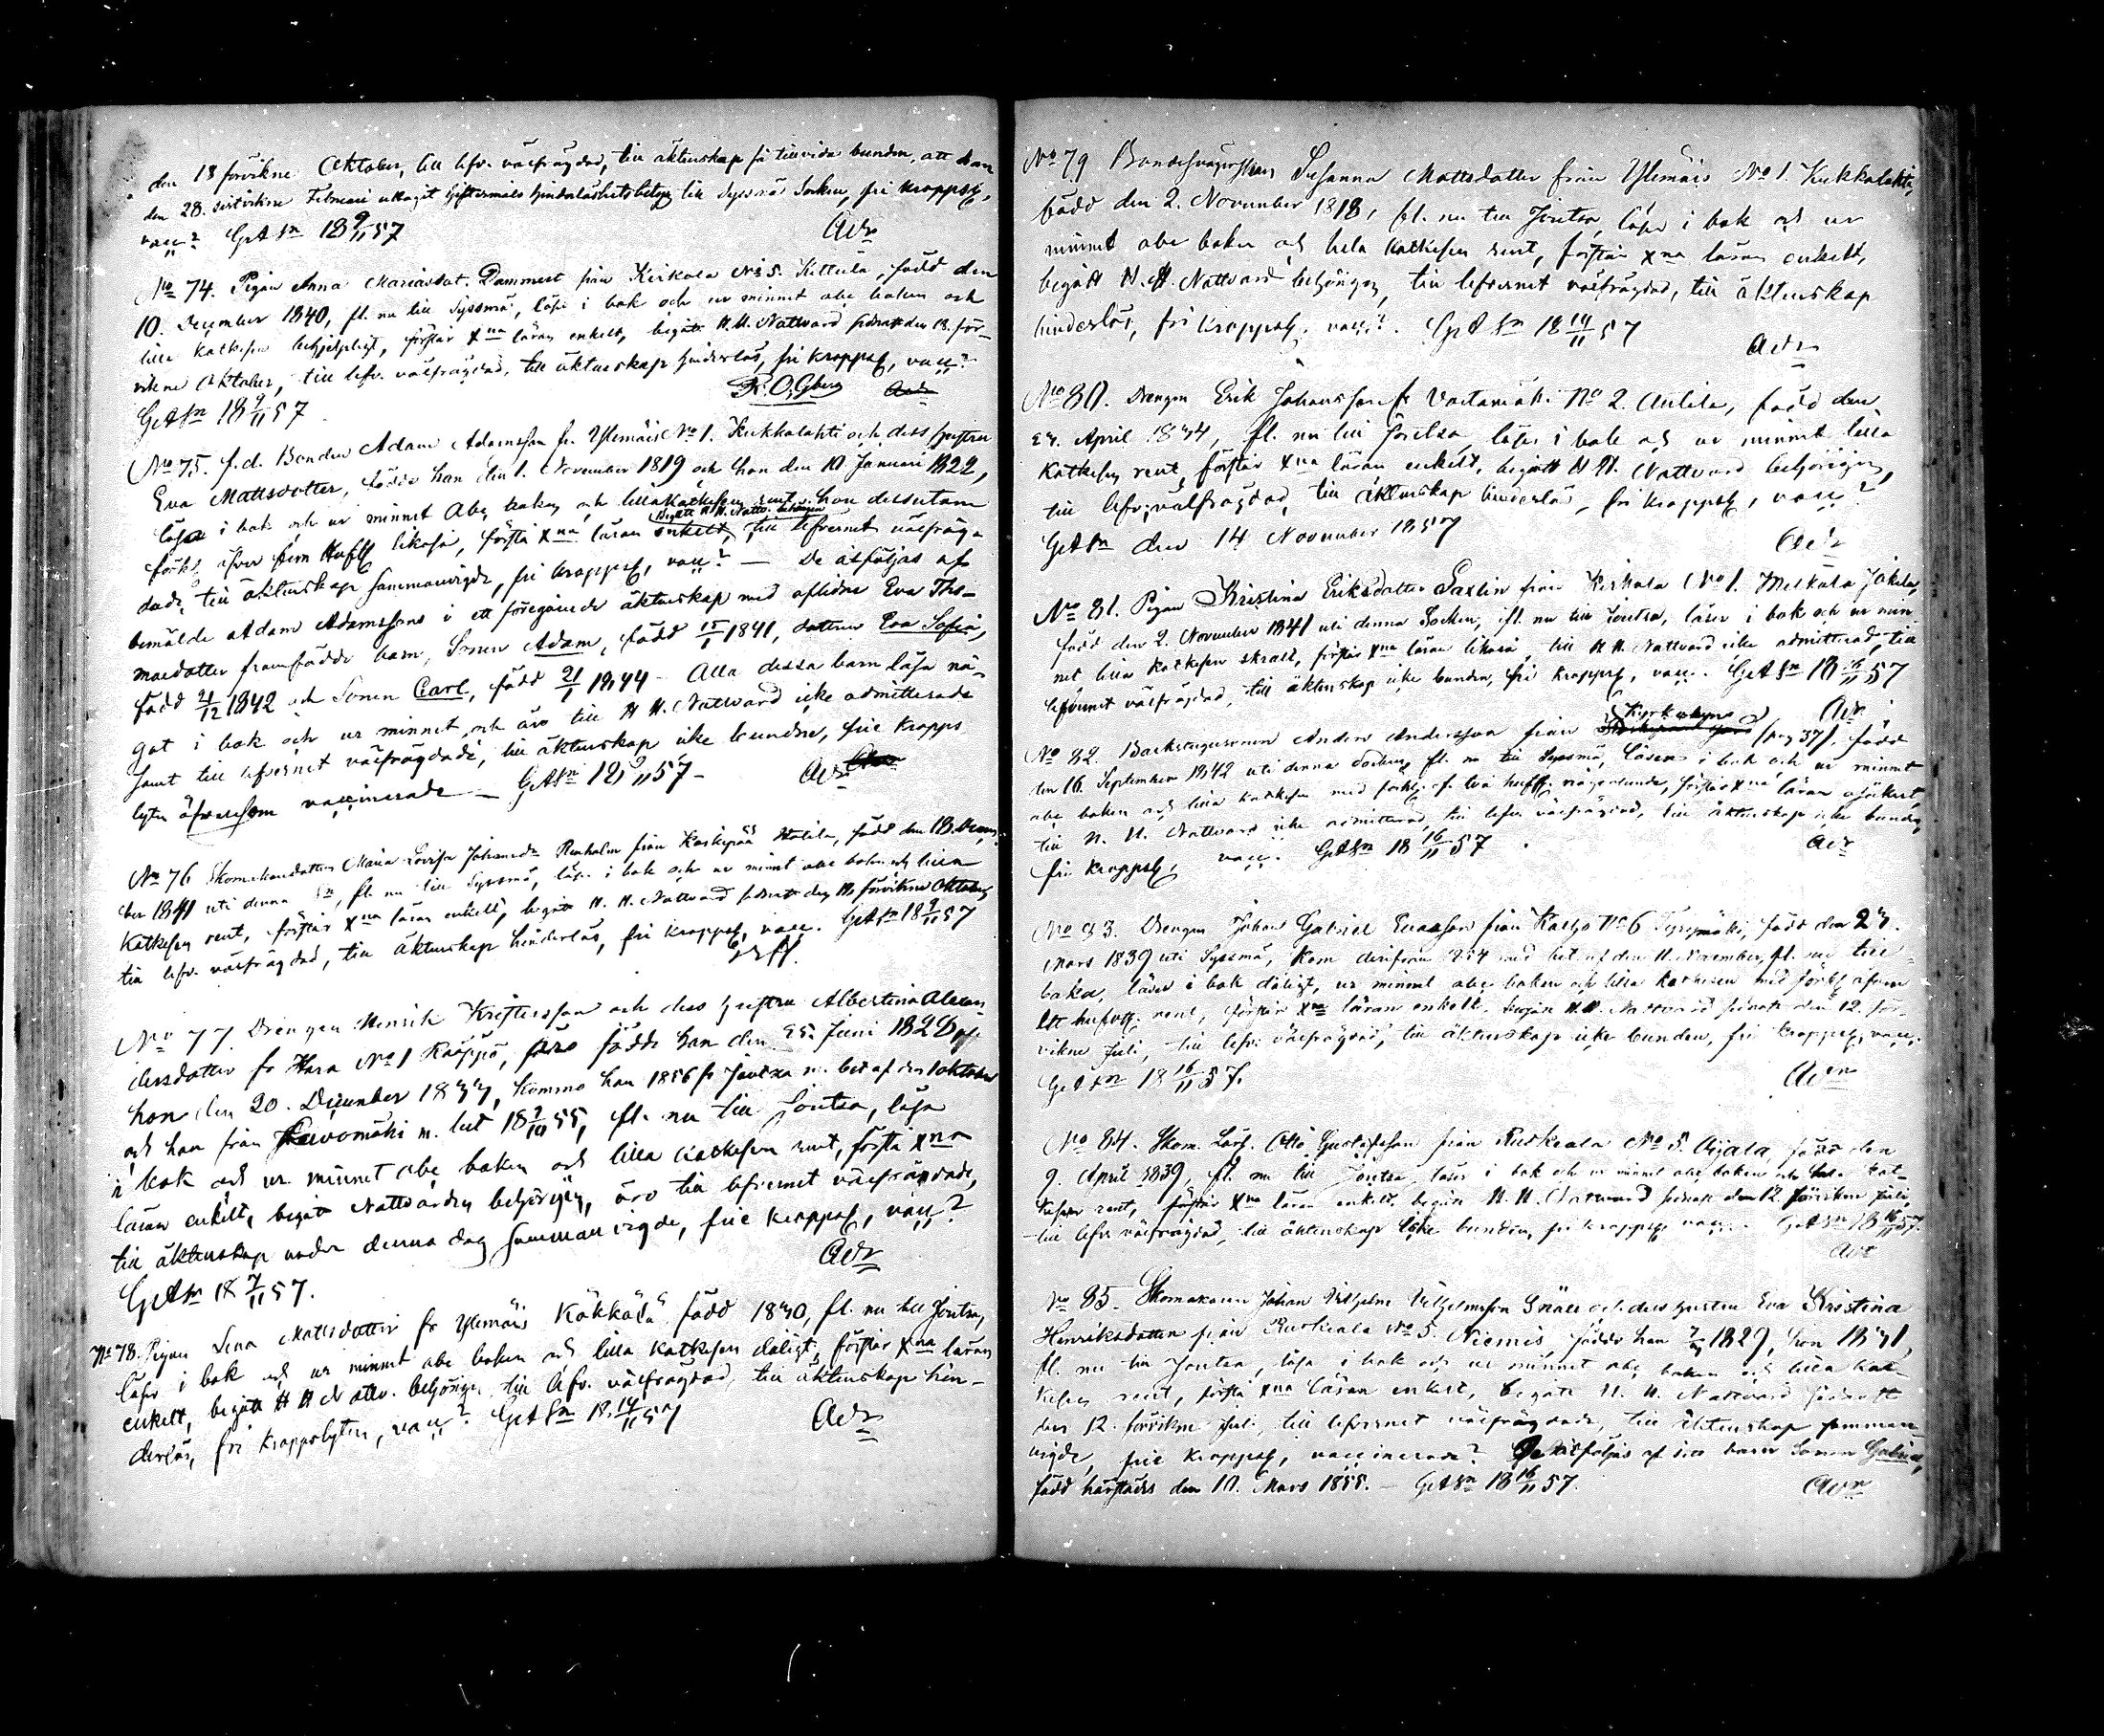 den 18 förvikne Oktober, till lefv. välfrägdad, till äktenskap så tillvida bunden, att han
den 28. sistvikne Februari uttagit Giftermåls hinderlöshetsbetyg till Sysmä Socken, fri kroppsly,
vacc? GetAsn 18 9/11 57 Adr
No 74. Pigan Anna Mariasdot. Dammert från Kirkola No 5. Kettula, född den
10. December 1840, fl. nu till Sysmä, läser i bok och ur minnet abc boken och
lilla Katkesen behjelpligt, förstår Xna läran enkelt, begått H. H. Nattvard sednast den 18. för-
vikne Oktober, till lefv. välfrägdad, till äktenskap hinderlös, fri kroppsly, vacc?
GetAsn 18 9/11 57
No 75. f.d. Bonden Adam Adamsson fr. Ylemäis No 1. Kukkolahti och dess hustru
Eva Mattsdotter, födde han den 1. November 1819 och hon den 10 Januari 1822,
läsa i bok och ur minnet Abc boken och lilla Katkesen rent, hon dessutom
begått H. H. Nattv. behörigen
förkl. öfver fem Hufst likaså, förstå Xna läran enkelt, till lefvernet välfräg-
dade, till äktenskap sammanvigde, fri kroppsly, vacc? — De åtföljas af
bemälde Adam Adamssons i ett föregående äktenskap med aflidne Eva Tho-
masdotter framfödde barn, Sonen Adam, född 15/1 1841, dottren Eva Sofia,
född 21/12 1842 och Sonen Carl, född 21/1 1844 - Alla dessa barn läsa nå-
got i bok och ur minnet, och äro till H H. Nattvard icke admitterade
samt till lefvernet välfrägdade, till äktenskap icke bundne, frie kropps
lyten äfvensom vaccinerade — GetAsn 18 9/11 57 - Adr
No 76 Skomakaredottren Maria Lovisa Johansdr Renholm från Koskipää Uotila, född den 18. Decem-
ber 1841 uti denna Sn, fl. nu till Sysmä, läser i bok och ur minnet abc boken och lilla
Katkesen rent, förstår Xna läran enkelt, begått H. H. Nattvard sednast den 11. förvikne Oktober,
till lefv. välfrägdad, till äktenskap hinderlös, fri kroppsly, vacc. GetAsn 18 9/11 57
No 77 Drengen Henrik Kristersson och dess hustru Albertina Alexan-
dersdotter fr Hara No 1 Räöppö, födde han den 25. Juni 1828 och
hon den 20. December 1834, komma han 1856 fr Joutsa m. bet af den 1 oktober
och hon från m. bet 18 7/10 55, fl. nu till Joutsa, läsa
i bok och ur minnet abc boken och lilla Katkesen rent, förstå Xna
läran enkelt, begått Nattvarden behörigen, äro till lefvernet välfrägdade,
till äktenskap under denna dag sammanvigde, frie kroppsly, vacc?
GetAsn 18 7/11 57. Adr
No 78. Pigan Lena Mattsdotter fr Ylemäis Kökkölä född 1830, fl. nu till Joutsa,
läser i bok och ur minnet abc boken och lilla Katkesen dåligt, förstår Xna läran
enkelt, begått H H Nattv. behörigen till lefv. välfrägdad, till äktenskap hin-
derlös, fri kroppslyten, vacc? GetAsn 18 14/11 57 Adr
No 79 Susanna Mattsdotter från Ylemäis No 1. Kukkolahti,
född den 2. November 1818, fl. nu till Joutsa, läser i bok och ur
minnet abc boken och hela Katkesen rent, förstår Xna läran enkelt,
begått H. H. Nattvard behörigen, till lefvernet välfrägdad, till äktenskap
hinderlös, fri kroppsly, vacc? GetAsn 18 14/11 57
Adr
No 80. Drengen Erik Johansson fr Vastamäki No 2. Anttila, född den
23. April 1834, fl. nu till Joutsa, läser i bok och ur minnet lilla
Katkesen rent, förstår Xna läran enkelt, begått H H. Nattvard behörigen,
till lefv. välfrägdad, till äktenskap hinderlös, fri kroppsly, vacc?
GetAsn den 14 November 1857 Adr
No 81. Pigan Kristina Eriksdotter Saxlin från Kirkola No 1. Jakola,
född den 2. November 1841 uti denna Socken, fl. nu till Joutsa, läser i bok och ur min-
net lilla Katkesen skralt, förstår Xna läran likaså, till H H. Nattvard icke admitterad, till
lefvernet välfrägdad, till äktenskap icke bunden, fri kroppsly, vacc. GetAsn 18 16/11 57
Adr
No 82. Backstugusonen Anders Andersson från (pag 371), född
den 16. September 1842 uti denna Socken, fl. nu till Sysmä, läser i bok och ur minnet
abc boken och lilla Katkesen med förkl. af två hufst. någorlunda, förstår Xna läran osäkert,
till H. H. Nattvard icke admitterad, till lefv. välfrägdad, till äktenskap icke bunden,
fri kroppsly, vacc. GetAsn 18 16/11 57. Adr
No 83. Drengen Johan Gabriel Evasson från No 6 född den 23.
Mars 1839 uti Sysmä, kom derifrån 1854 med bet. af den 11. November, fl. nu till-
baka, läser i bok dåligt, ur minnet abc boken och lilla Katkesen med förkl. öfver
ett hufvst. rent, förstår Xna läran enkelt, begått H. H. Nattvard sednast den 12. för-
vikne Juli, till lefv. välfrägdad, till äktenskap icke bunden, fri kroppsly, vacc.
GetAsn 18 16/11 57. Adr
No 84. Skom. Lärl. Otto Gustafsson från Ruskeala No 5. Ojala, född den
9. April 1839, fl. nu till Joutsa, läser i bok och ur minnet abc boken och hela Kat-
kesen rent, förstår Xna läran enkelt, begått H. H. Nattvard sednast den 12. förvikne Juli,
till lefv. välfrägdad, till äktenskap icke bunden, fri kroppsly, vacc. GetAsn 18 16/11 57.
Adr
No 85. Skomakaren Johan Vilhelm Vilhelmsson Snäll och dess hustru Eva Kristina
Henriksdotter från Ruskeala No 5. Niemis födde han 1829, hon 1831,
fl. nu till Joutsa, läsa i bok och ur minnet abc boken och lilla Kat-
kesen rent, förstå Xna läran enkelt, begått H. H. Nattvard sednast
den 12. förvikne Juli, till lefvernet välfrägdade, till äktenskap samman-
vigde, frie kroppsly, vaccinerade? De åtföljas af sitt barn Sonen Gabriel,
född härstädes den 10. Mars 1855. — GetAsn 18 16/11 57. Adr